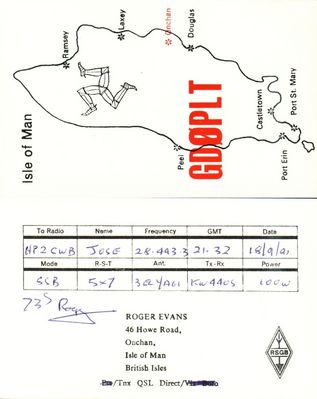 Isle of Man
Ramsey
Laxey
Onchan
Douglas
GDØPLT
Peel
Castletown
Port St. Mary
Port Erin
To Radio Name Frequency GMT Date
HP2CWB JOSE 28.443.3 21.32 18/9/91
Mode R-S-T Ant. Tx-Rx Power
SSB 5x7 3EL YAGI KW440S 100W
73s Roger
ROGER EVANS
46 Howe Road,
Onchan,
Isle of Man
British Isles
/Tnx QSL Direct/
RSGB